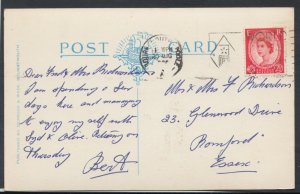 POST CARD
Dear Fred & Mrs Richardson
I am spending a few
days here and managing
to enjoy my self with
Syd & Olive. Returning on
Thursday
Bert
Mr & Mrs F Richardson
23, Glenwood Drive
Romford
Essex.